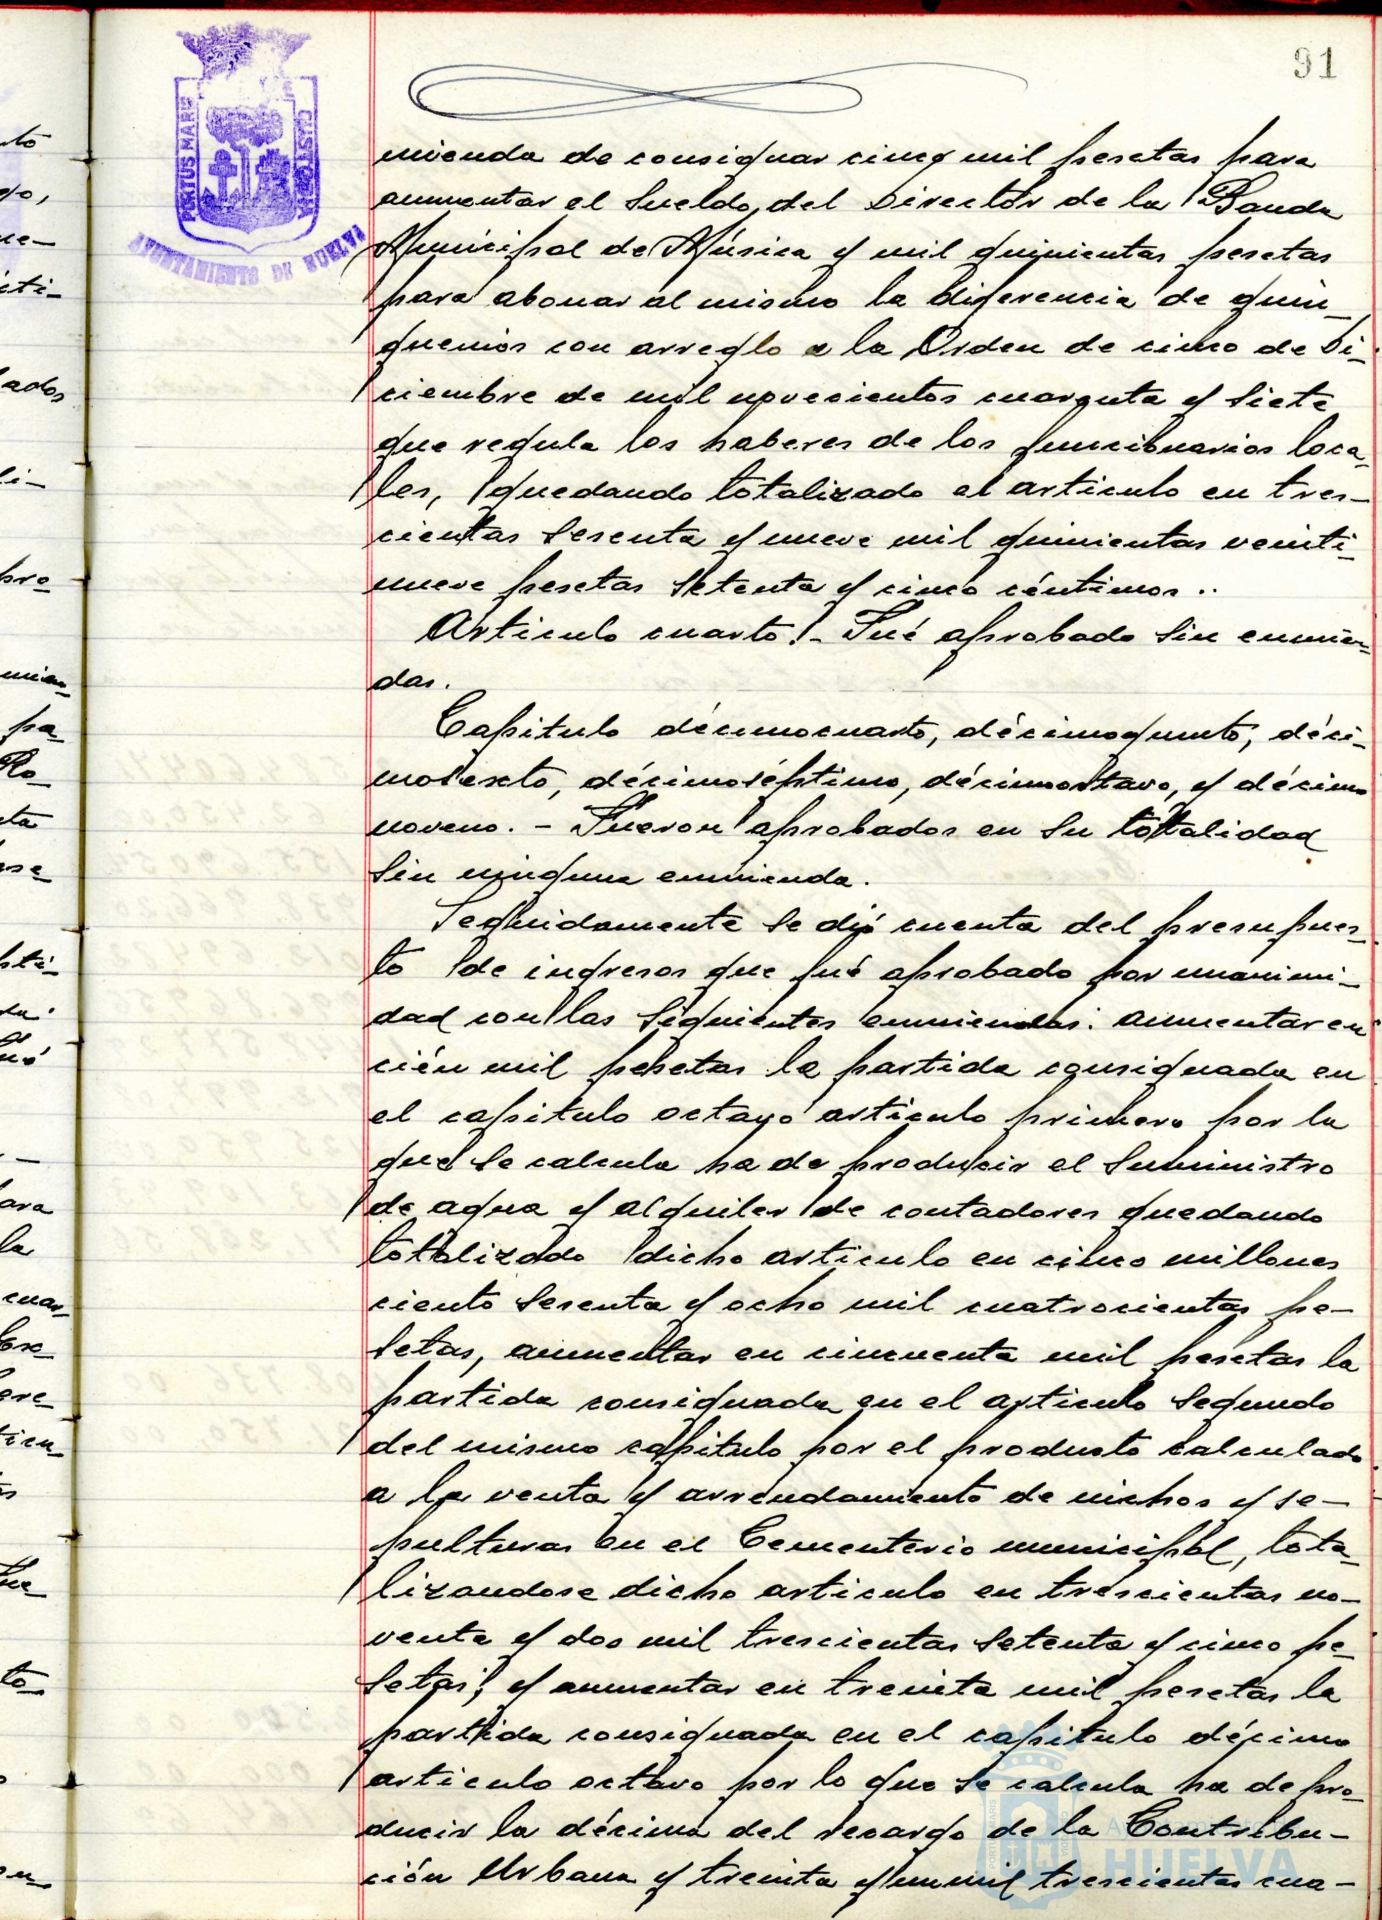 91
PORTUS MARIS
CUSTODIA
AYUNTAMIENTO DE HUELVA
mienda de consignar cinco mil pesetas para
aumentar el sueldo, del Director de la Banda
Municipal de Música y mil quinientas pesetas
para abonar al mismo la diferencia de quin-
quenios con arreglo a la Orden de cinco de Di-
ciembre de mil novecientos cuarenta y siete
que regula los haberes de los funcionarios loca-
les, quedando totalizado el artículo en tres-
cientas sesenta y nueve mil quinientas veinti-
nueve pesetas setenta y cinco céntimos..
Artículo cuarto.- Fué aprobado sin enmien-
das.
Capitulo décimocuarto, décimoquinto, déci-
mosexto, décimoséptimo, décimoctavo, y décimo
noveno. - Fueron aprobados en su totalidad
sin ninguna enmienda.
Seguidamente se dió cuenta del presupues-
to de ingresos que fué aprobado por unanimi-
dad con las siguientes enmiendas: aumentar en
cién mil pesetas la partida consignada en
el capitulo octavo artículo primero por lo
que se calcula ha de producir el suministro
de agua y alquiler de contadores quedando
totalizado dicho artículo en cinco millones
ciento sesenta y ocho mil cuatrocientas pe-
setas, aumentar en cincuenta mil pesetas la
partida consignada en el artículo segundo
del mismo capitulo por el producto calculado
a la venta y arrendamiento de nichos y se-
pulturas en el Cementerio municipal, tota-
lizandose dicho artículo en trescientas no-
venta y dos mil trescientas setenta y cinco pe-
setas; y aumentar en treinta mil pesetas la
partida consignada en el capitulo décimo
artículo octavo por lo que se calcula ha de pro-
ducir la décima del recargo de la Contribu-
ción Urbana y treinta y un mil trescientas cua-
HUELVA